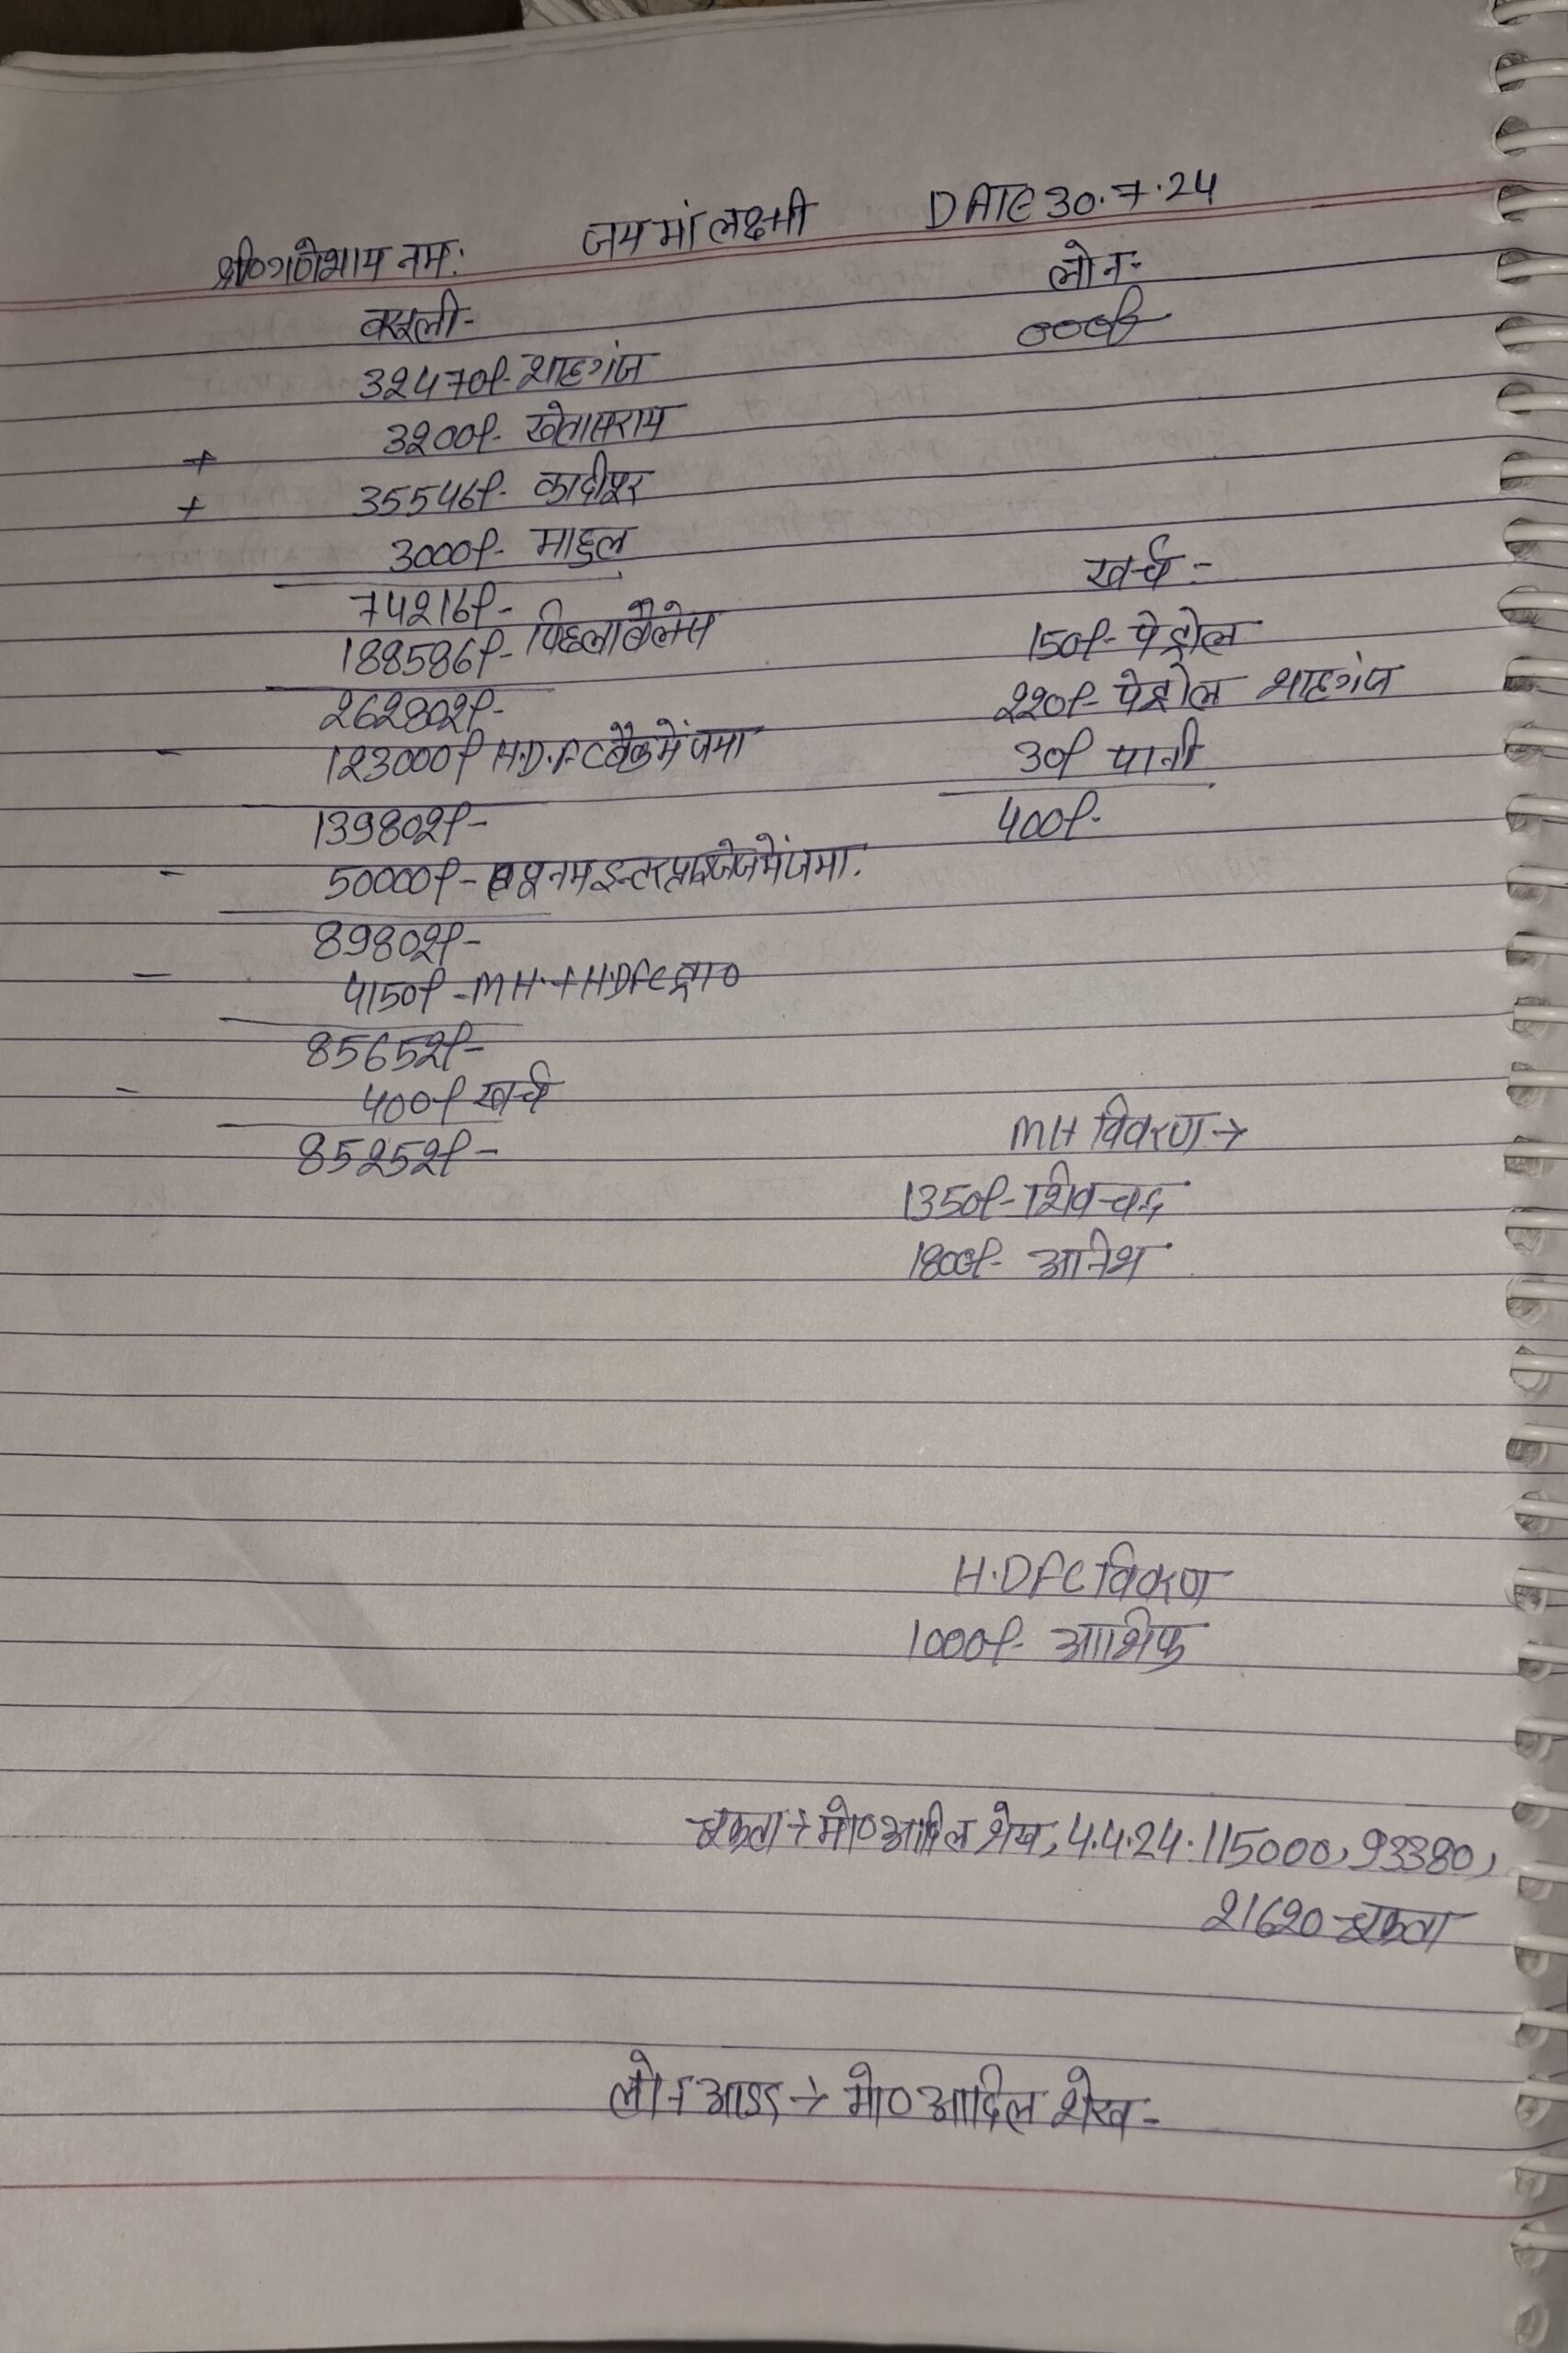 श्री गणेशाय नमः जय मां लक्ष्मी DATE 30.7.24
वसूली-
32470/- शाहगंज
+ 3200/- खेतासराय
+ 35546/- कादीपुर
3000/- माहुल
74216/-
188586/- पिछला बैलेंस
262802/-
- 123000/- H.D.FC बैंक में जमा
139802/-
- 50000/- पूनम इन्टरप्राइजेज में जमा.
89802/-
- 4150/- MH + H.DFC ट्रा०
85652/-
- 400/- खर्च
85252/-
लोन-
000/-
खर्च :-
150/- पेट्रोल
220/- पेट्रोल शाहगंज
30/- पानी
400/-
MH विवरण →
1350/- शिवचन्द
1800/- अनिश
H.DFC विवरण
1000/- आशिफ
चुकता → मो० आदिल शेख, 4.4.24. 115000, 93380,
21620 चुकता
लोन आउट → मो० आदिल शेख -